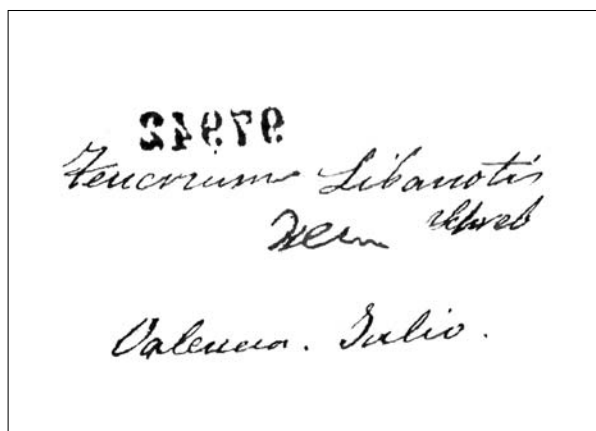 Teucrium Libanotis
Schreb
Valencia. Julio.